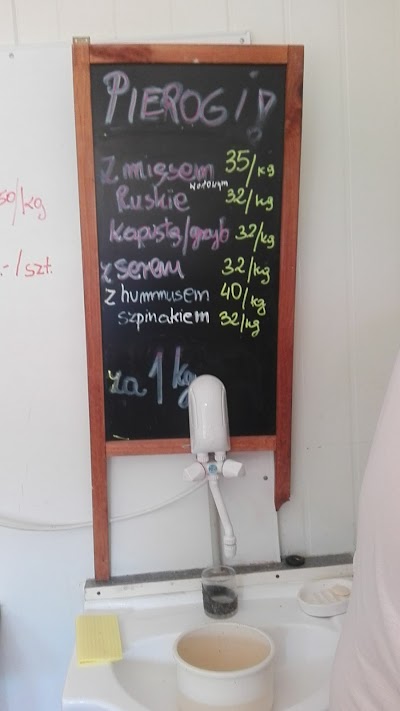 PIEROGI!
50/kg
.-/szt.
Z mięsem 35/kg
wołowym
Ruskie 32/kg
kapustą/grzyb 32/kg
z serem 32/kg
z hummusem 40/kg
szpinakiem 32/kg
za 1kg